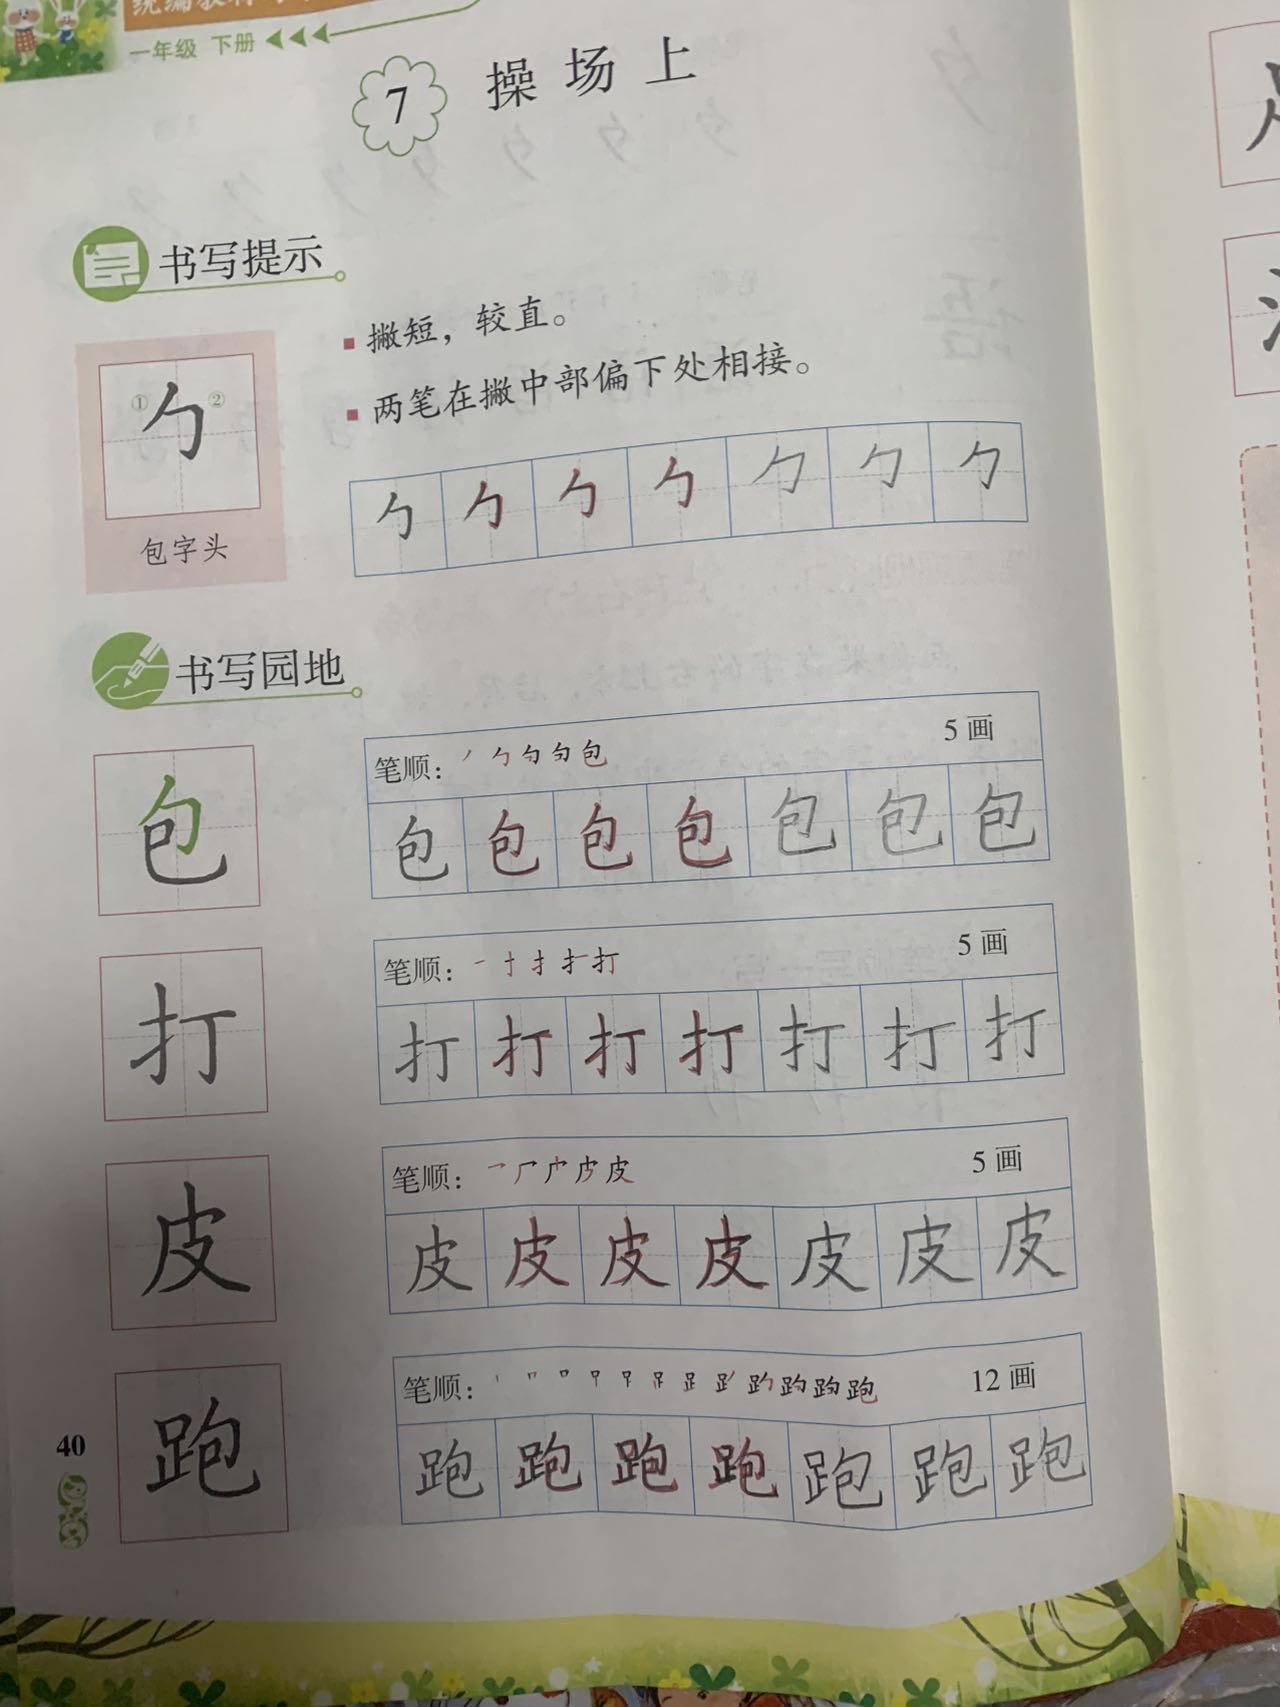 一年级 下册
7 操场上
书写提示
①勹②
包字头
撇短，较直。
两笔在撇中部偏下处相接。
勹 勹 勹 勹 勹 勹 勹
书写园地
包
笔顺： 包 5画
包 包 包 包 包 包 包
打
笔顺： 一 十 扌 打 5画
打 打 打 打 打 打 打
皮
笔顺： 皮 5画
皮 皮 皮 皮 皮 皮 皮
跑
笔顺： 跑 12画
跑 跑 跑 跑 跑 跑 跑
40